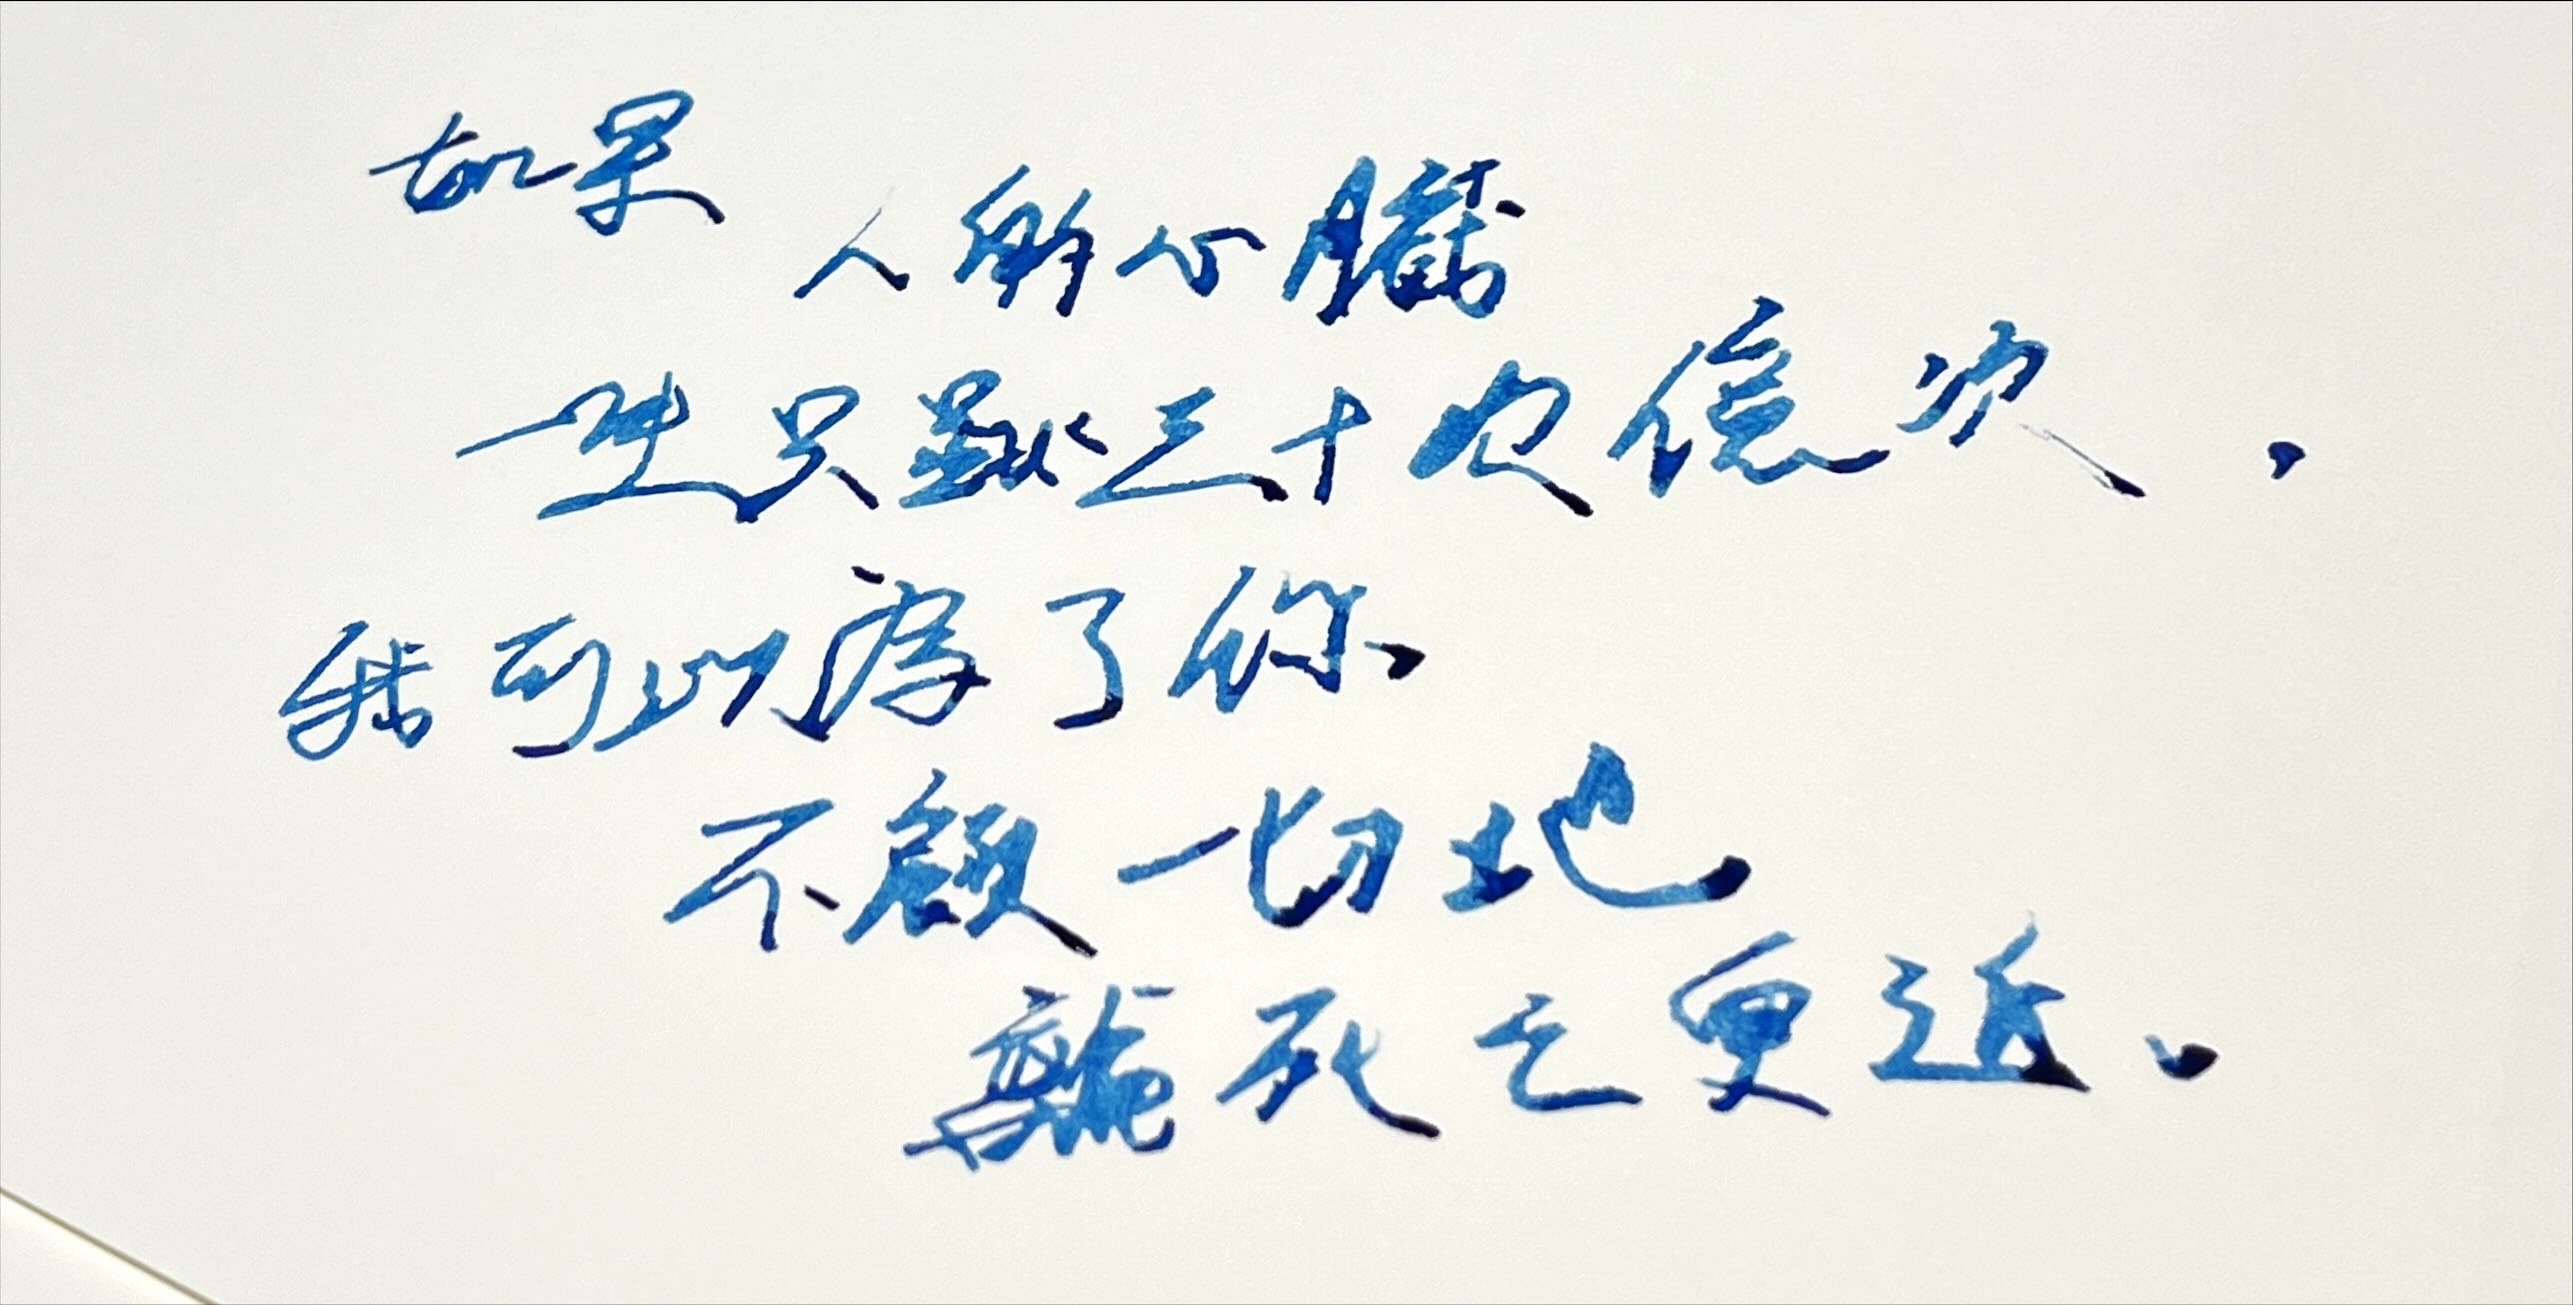 如果
人的心臟
一生只跳三十六億次，
我可以為了你
不顧一切地
離死亡更近。